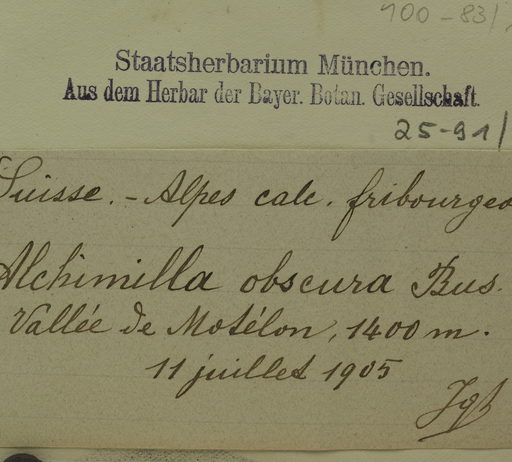 100-83/
Staatsherbarium München.
Aus dem Herbar der Bayer. Botan. Gesellschaft.
25-91/
Suisse. - Alpes calc. fribourgeo
Alchimilla obscura Bus.
Vallée de Motélon, 1400 m.
11 juillet 1905